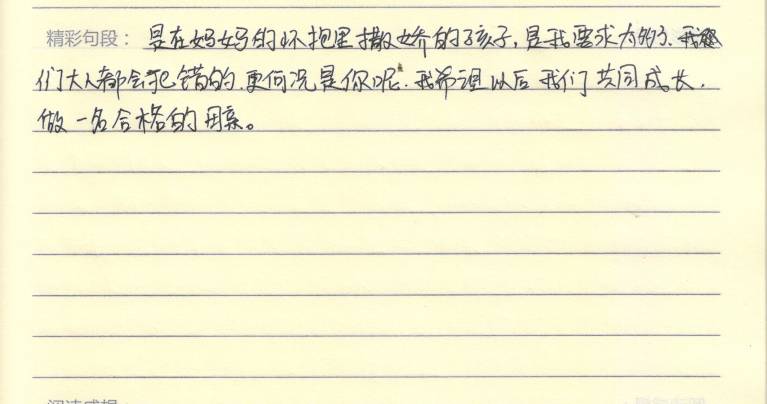 精彩句段：是在妈妈的怀抱里撒娇的孩子，是我要求
们大人都会犯错的，更何况是你呢，我希望以后我们共同成长，
做一名合格的母亲。